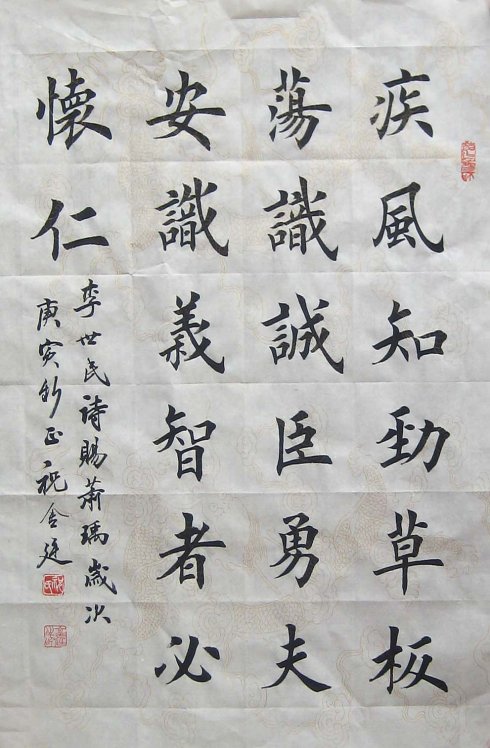 疾風知勁草板
蕩識誠臣勇夫
安識義智者必
懷仁
李世民诗賜萧瑀歲次
庚寅釟正祝金廷